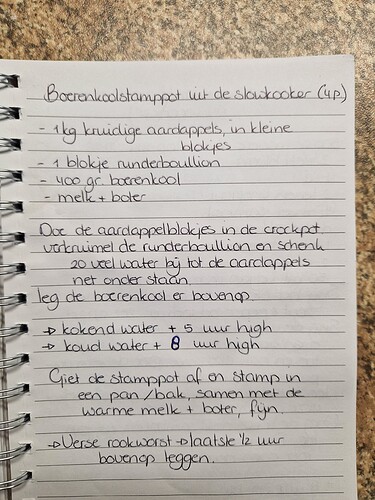 Boerenkoolstamppot uit de slowkooker (4p)
- 1kg kruidige aardappels, in kleine
blokjes
- 1 blokje runderboullion
- 400 gr. boerenkool
- melk + boter
Doe de aardappelblokjes in de crockpot
verkruimel de runderboullion en schenk
zo veel water bij tot de aardappels
net onder staan.
leg de boerenkool er bovenop.
→ kokend water + 5 uur high
→ koud water + 8 uur high
Giet de stamppot af en stamp in
een pan/bak, samen met de
warme melk + boter, fijn.
→ Verse rookworst → laatste 1/2 uur
bovenop leggen.